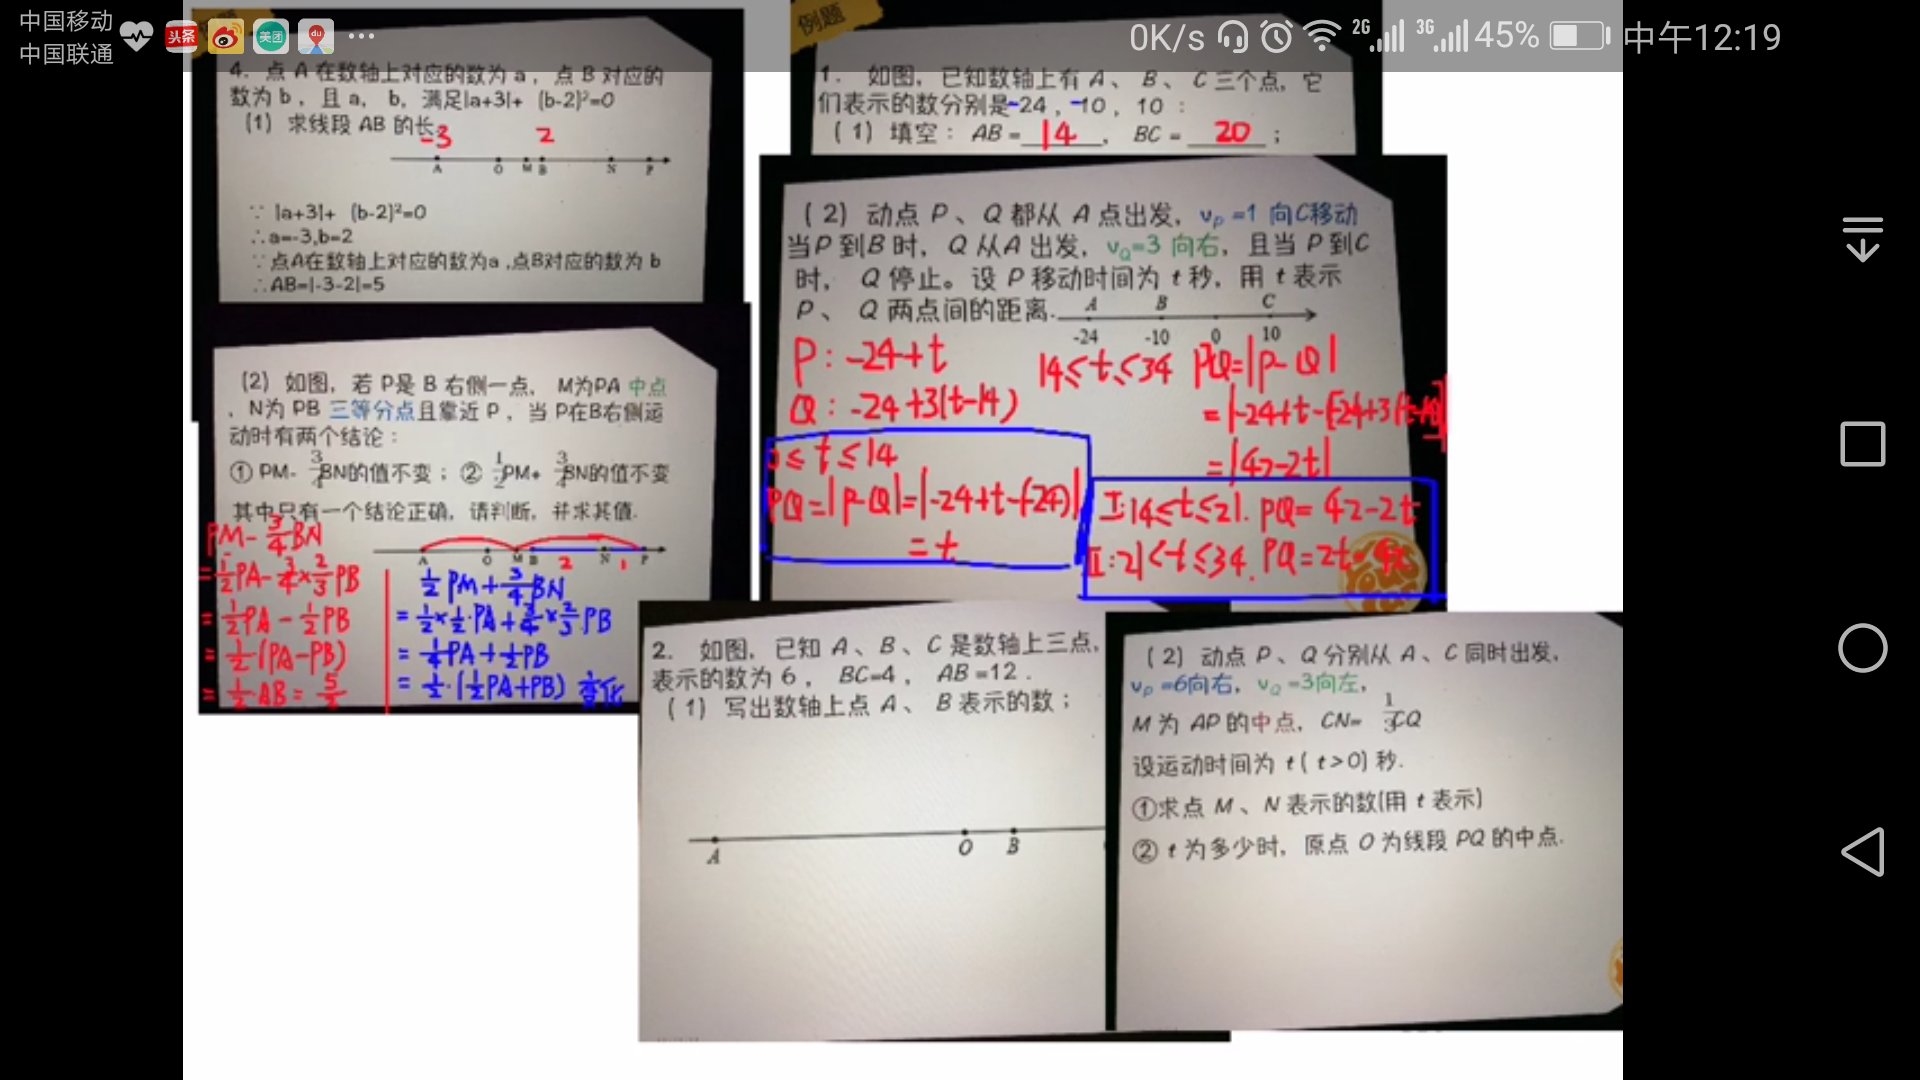 中国移动
中国联通
头条
美团
du
0K/s
2G
3G
45%
中午12:19
4. 点 A 在数轴上对应的数为 a , 点 B 对应的
数为 b , 且 a, b, 满足|a+3|+ (b-2)²=0
(1) 求线段 AB 的长.
-3 2
A O M B N P
∵ |a+3|+ (b-2)²=0
∴a=-3,b=2
∵点A在数轴上对应的数为a ,点B对应的数为 b
∴AB=|-3-2|=5
(2) 如图, 若 P是 B 右侧一点, M为PA 中点
, N为 PB 三等分点且靠近 P , 当 P在B右侧运
动时有两个结论:
① PM- 3/4BN的值不变; ② 1/2PM+ 3/4BN的值不变
其中只有一个结论正确, 请判断, 并求其值.
A O M B 2 N 1 P
PM-3/4BN
=1/2PA-3/4×2/3PB
=1/2PA-1/2PB
=1/2(PA-PB)
=1/2AB=5/2
1/2PM+3/4BN
=1/2×1/2PA+3/4×2/3PB
=1/4PA+1/2PB
=1/2(1/2PA+PB) 变化
例题
1. 如图, 已知数轴上有 A 、 B 、 C 三个点, 它
们表示的数分别是-24 , -10 , 10 :
(1) 填空: AB= 14 , BC= 20 ;
(2) 动点 P 、 Q 都从 A 点出发, vP =1 向C移动
当P 到B 时, Q 从A 出发, vQ=3 向右, 且当 P 到C
时, Q 停止。设 P 移动时间为 t 秒, 用 t 表示
P 、 Q 两点间的距离.
A B C
-24 -10 0 10
P:-24+t
Q:-24+3(t-14)
0≤t≤14
PQ=|P-Q|=|-24+t-(-24)|
=t
14≤t≤34 PQ=|P-Q|
=|-24+t-[-24+3(t-14)]|
=|42-2t|
I:14≤t≤21. PQ=42-2t
II:21<t≤34. PQ=2t-42
2. 如图, 已知 A 、B 、C 是数轴上三点,
表示的数为 6 , BC=4 , AB =12 .
(1) 写出数轴上点 A 、 B 表示的数;
A O B
(2) 动点 P 、Q 分别从 A 、C 同时出发,
vP =6向右, vQ =3向左,
M 为 AP 的中点, CN= 1/3CQ
设运动时间为 t ( t>0) 秒.
①求点 M 、N 表示的数(用 t 表示)
② t 为多少时, 原点 O 为线段 PQ 的中点.